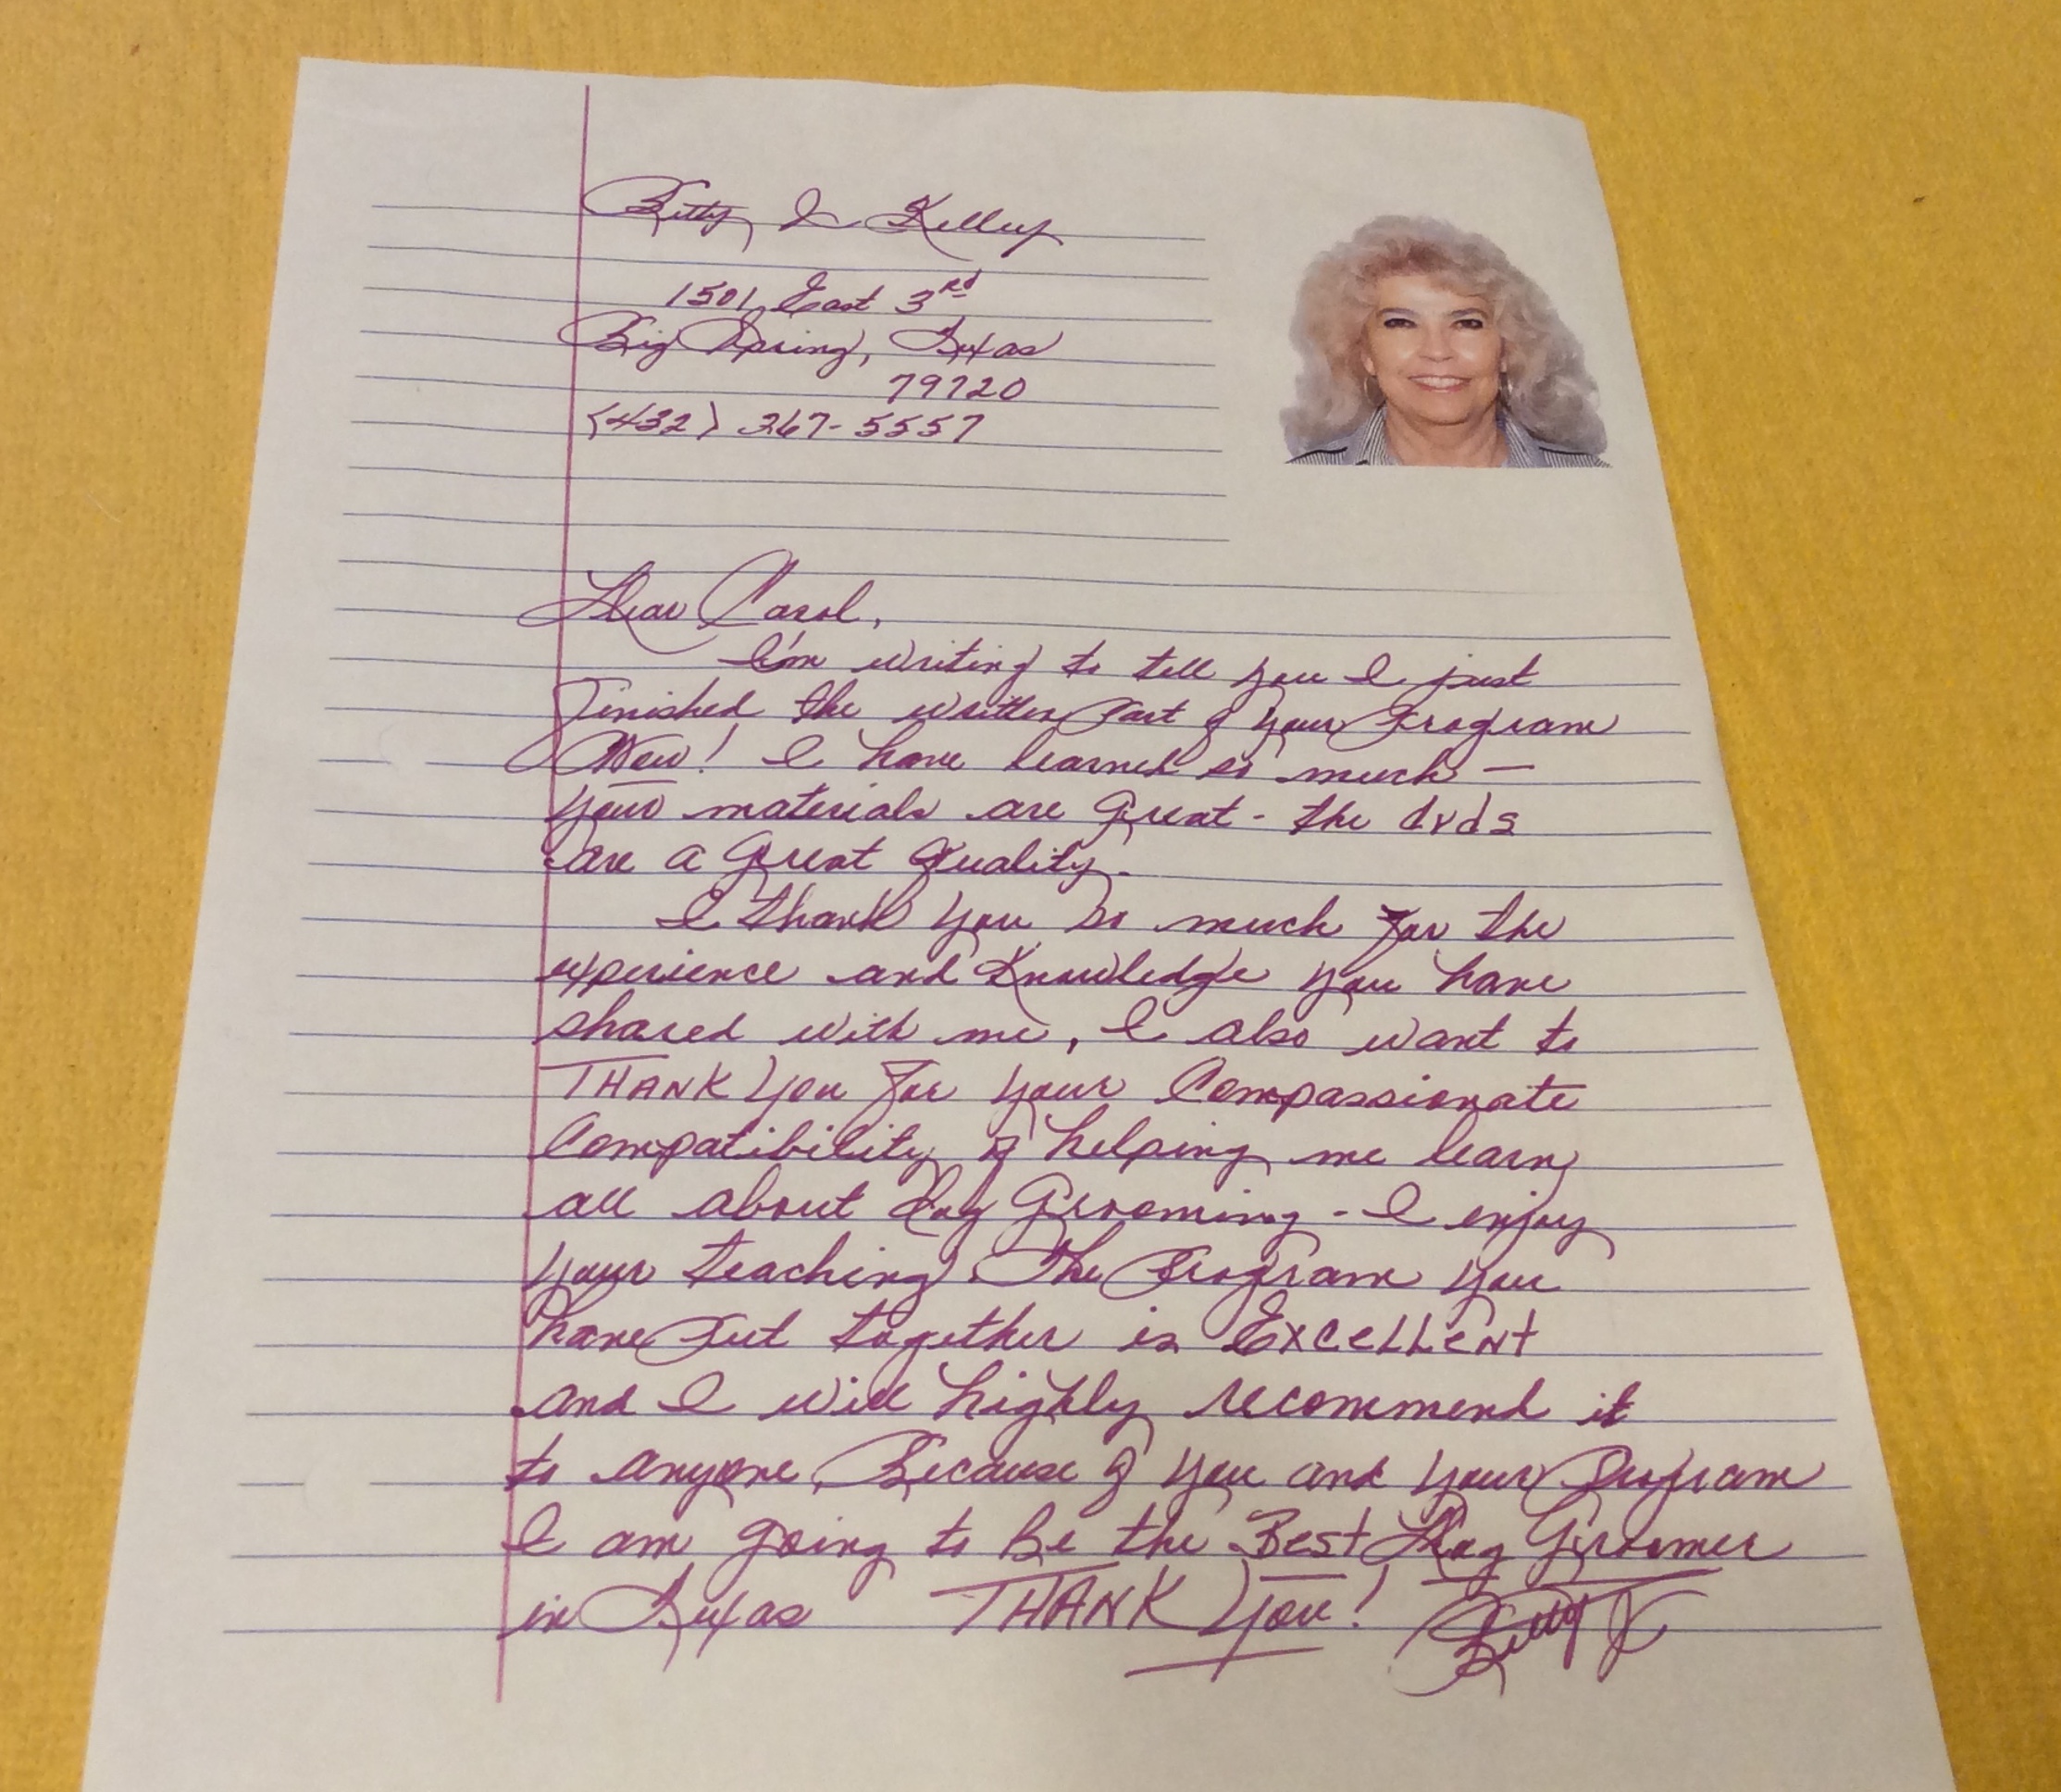 Betty J Kelley
1501 East 3rd
Big Spring, Texas
79720
(432) 267-5557
Dear Carol,
I'm writing to tell you I just
Finished the written Part of your Program
Wow! I have learned so much —
your materials are Great - the dvds
are a Great Quality.
I thank you so much for the
experience and Knowledge you have
shared with me, I also want to
THANK You For your Compassionate
Compatibility of helping me learn
all about dog Grooming - I enjoy
your teaching. The Program you
have Put together is EXCELLENT
and I will highly recommend it
to anyone, Because of you and your Program
I am going to be the Best Dog Groomer
in Texas THANK You! Betty J